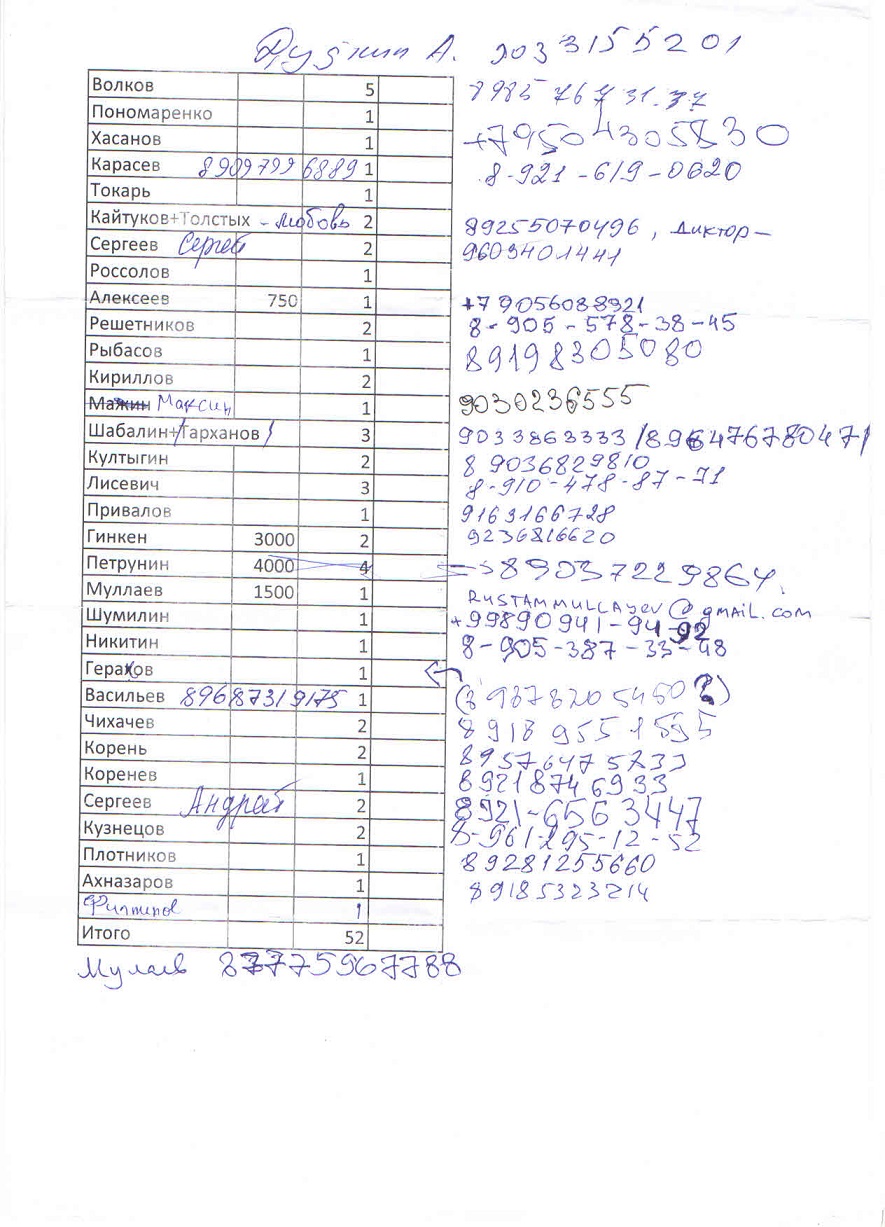 А. 903 3155201
Волков 5 8985 767 31.37
Пономаренко 1
Хасанов 1 +79504305830
Карасев 89097996889 1 8-921-619-0620
Токарь 1
Кайтуков+Толстых - любовь 2 89255070496, диктор-
Сергеев Сергей 2 9603401441
Россолов 1
Алексеев 750 1 +7 9056088921
Решетников 2 8-905-578-38-45
Рыбасов 1 89198305080
Кириллов 2
Мажин Максим 1 9030236555
Шабалин+/Тарханов/ 3 9033863333 /896476780471
Култыгин 2 8 9036829810
Лисевич 3 8-910-478-87-71
Привалов 1 9163166728
Гинкен 3000 2 9236816620
Петрунин 4000 4 89037229864
Муллаев 1500 1 RUSTAMMULLAYEV@gmail.com
Шумилин 1 +99890941-94-92
Никитин 1 8-905-387-33-48
Герахов 1
Васильев 89687319175 1 (8 9878205450 2)
Чихачев 2 8918 955 1595
Корень 2 89576475233
Коренев 1 89218746933
Сергеев Андрей 2 8921-6563447
Кузнецов 2 8-961-295-12-52
Плотников 1 89281255660
Ахназаров 1 89185323214
Филипов 1
Итого 52
Мулаев 87775967788